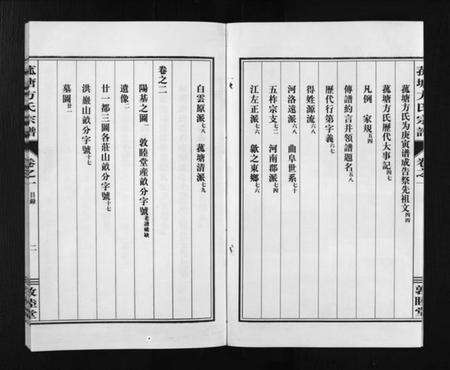 菰塘方氏宗譜 卷之一
敦睦堂
菰塘方氏為庚寅譜成告祭先祖文四四
菰塘方氏歷代大事記四七
凡例 家規五四
傳譜約言并領譜題名五八
歷代行第字義六七
得姓源流六八
河洛遠派六九 曲阜世系七十
五柞宗支七二 河南郡派七四
江左正派七六 歙之東鄉七六
白雲原派七八 菰塘清派七九
卷之二
陽基之圖一 敦睦堂產畝分字號老譜破缺
遺像二
廿一都三圖各莊山畝分字號十七
洪巖山畝分字號十七
墓圖廿一
菰塘方氏宗譜 卷之一 目錄 二
敦睦堂